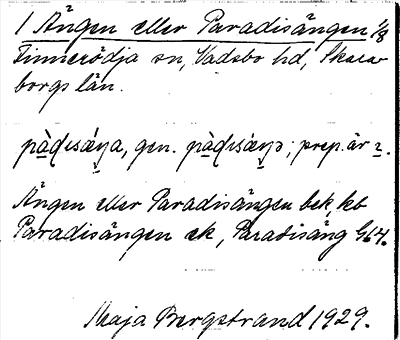 1 Ängen eller Paradisängen 1/8
Tinnerödja sn, Vadsbo hd, Skara-
borgs län.
pàd̦ɩsáŋa, gen. pàd̦ɩsáŋə; prep. är ɩ.
Ängen eller Paradisängen bek, kb
Paradisängen ek, Paradisäng G64.
Maja Bergstrand 1929.